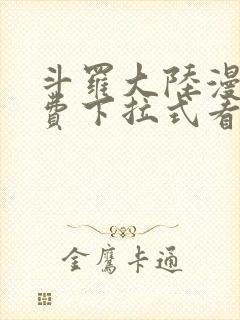 斗羅大陸漫
費下拉式看
金鷹卡通